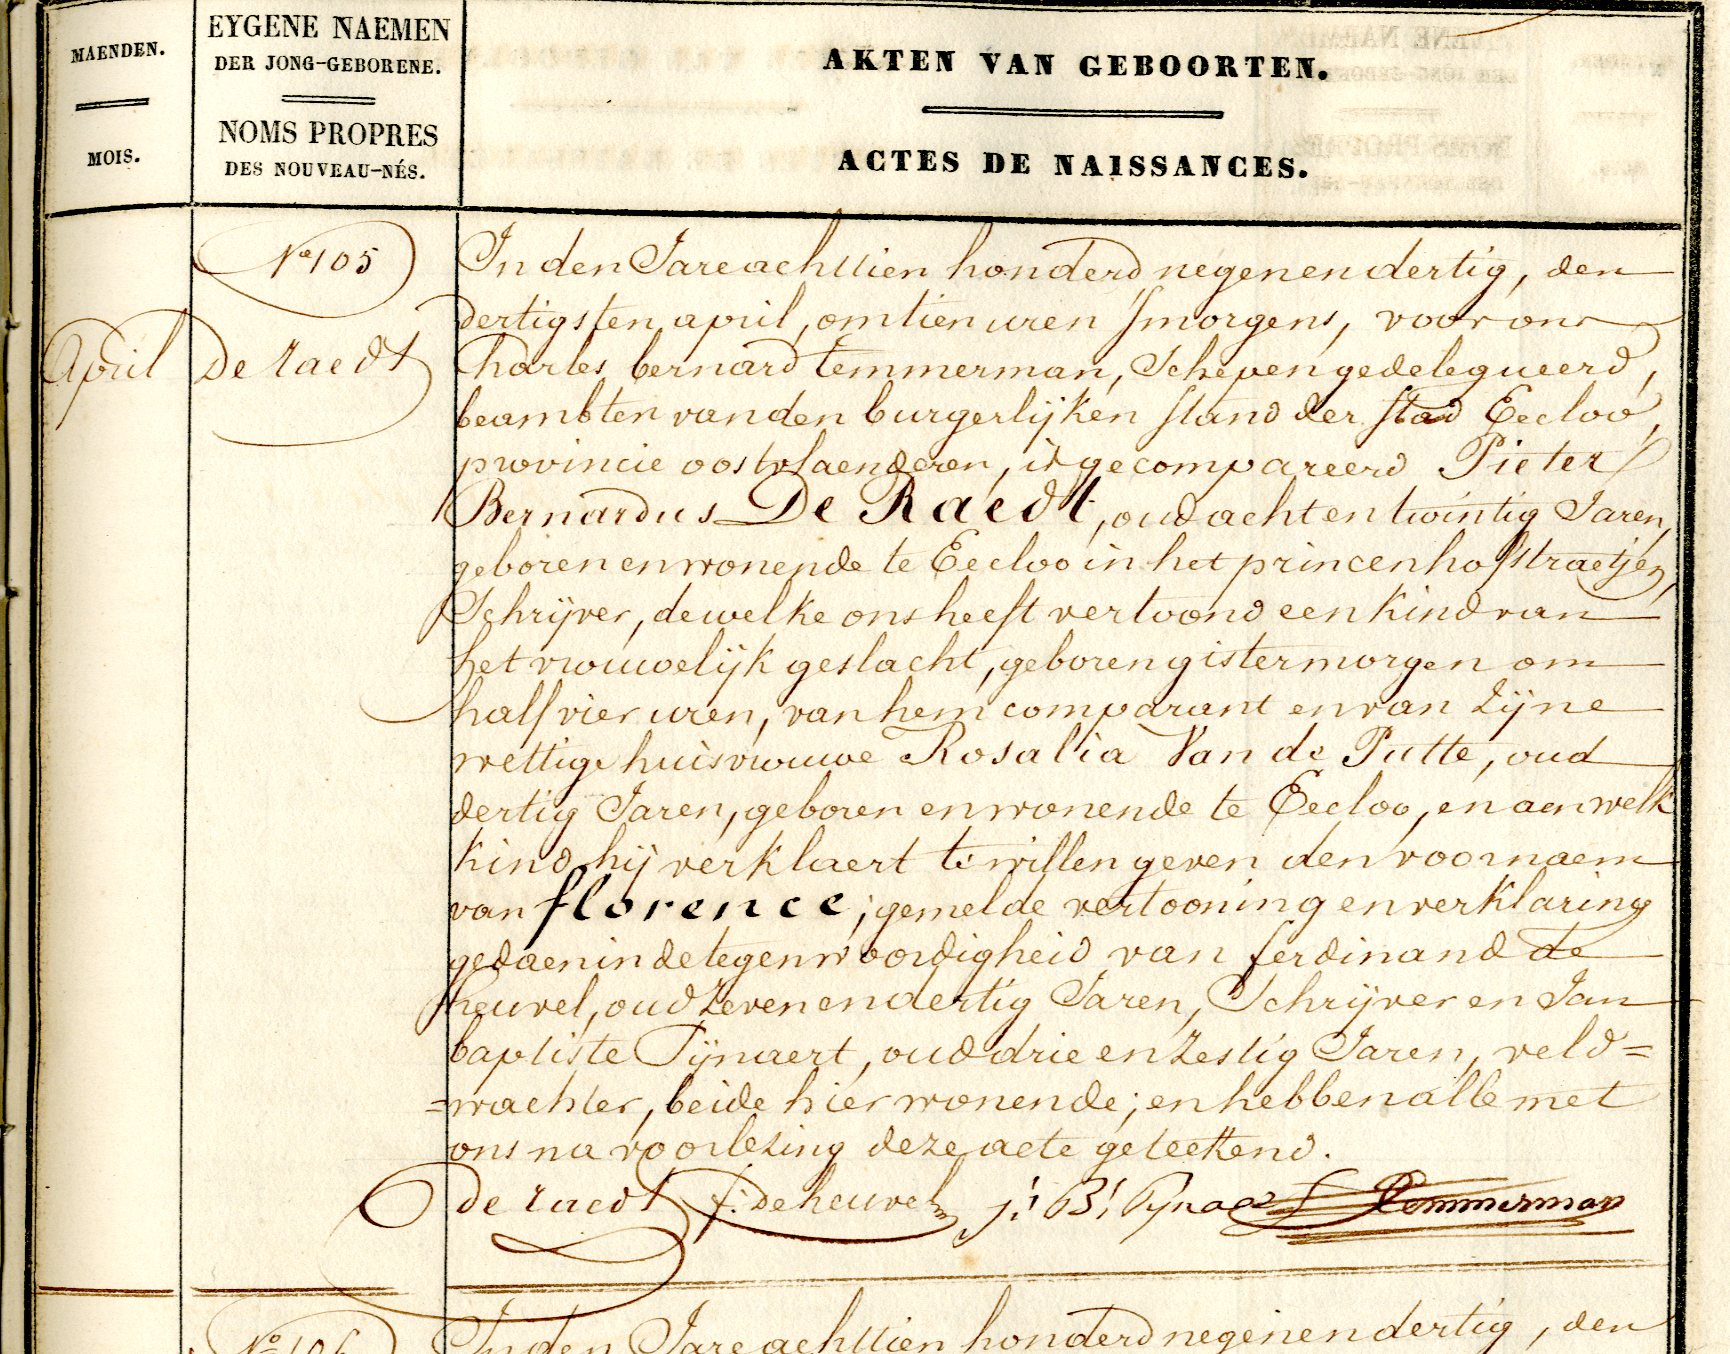 MAENDEN.
MOIS.
EYGENE NAEMEN
DER JONG-GEBORENE.
NOMS PROPRES
DES NOUVEAU-NÉS.
AKTEN VAN GEBOORTEN.
ACTES DE NAISSANCES.
N° 105
April
De Raedt
In den Jare achttien honderd negenendertig, den
dertigsten april, om tien uren smorgens, voor ons
Charles bernard temmerman, Schepen gedelegueerd,
beambten van den burgerlijken stand der stad Eecloo,
provincie oostvlaenderen, is gecompareerd Pieter
Bernardus De Raedt, oud acht en twintig Jaren,
geboren en wonende te Eecloo in het princenhofstraetjen,
Schrijver, dewelke ons heeft vertoond een kind van
het vrouwelijk geslacht, geboren gistermorgen om
half vier uren, van hem comparant en van zijne
wettige huisvrouwe Rosalia Van de Putte, oud
dertig Jaren, geboren en wonende te Eecloo, en aen welk
kind hij verklaert te willen geven den voornaem
van florence; gemelde vertooning en verklaring
gedaen in de tegenwoordigheid van ferdinand de
heuvel, oud zeven en dertig Jaren, Schrijver en Jan
baptiste Pijnaert, oud drie en zestig Jaren, veld=
=wachter, beide hier wonende; en hebben alle met
ons na voorlezing deze acte geteekend.
de raedt f: de heuvel j: B: Pynaert Temmerman
N° 106
In den Jare achttien honderd negenendertig, den